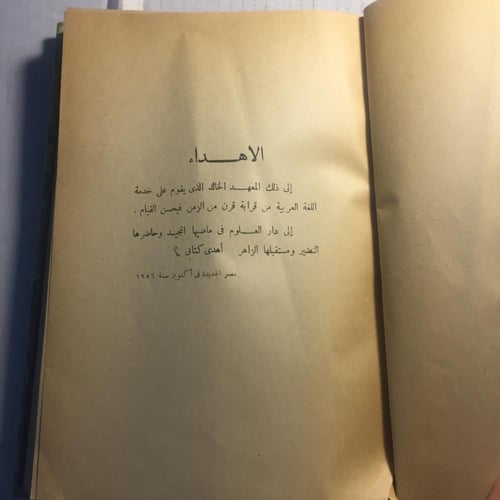 الاهداء
إلى ذلك المعهد الخالد الذى يقوم على خدمة
اللغة العربية من قرابة قرن من الزمن فيحسن القيام .
إلى دار العلوم فى ماضيها المجيد وحاضرها
النضير ومستقبلها الزاهر أهدى كتابى ؟
مصر الجديدة فى أكتوبر سنة ١٩٥٦